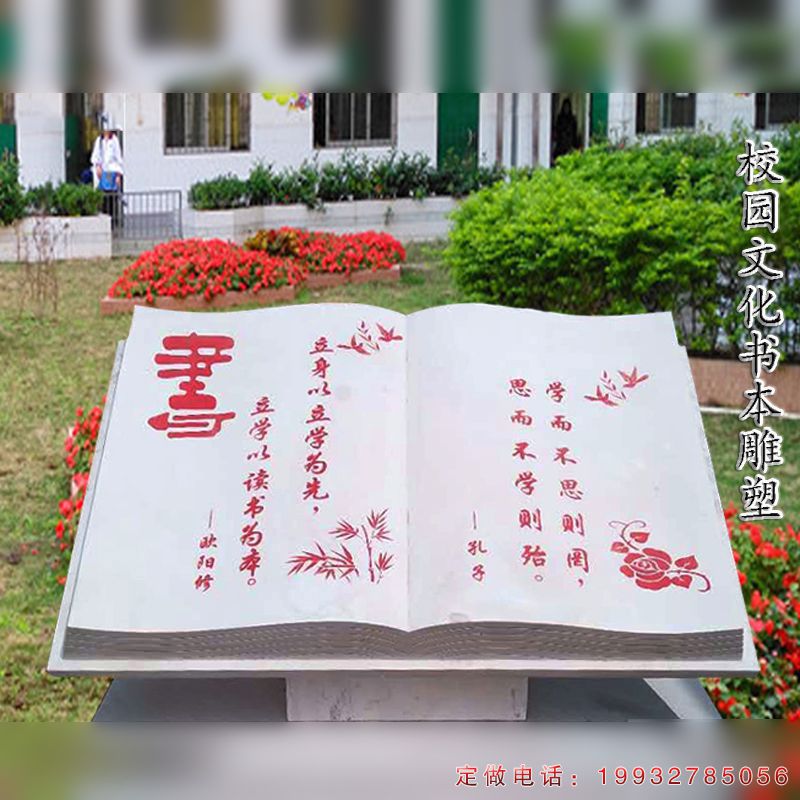 書
立身以立学为先，
立学以读书为本。
—欧阳修
学而不思则罔，
思而不学则殆。
—孔子
校园文化书本雕塑
定做电话：19932785056